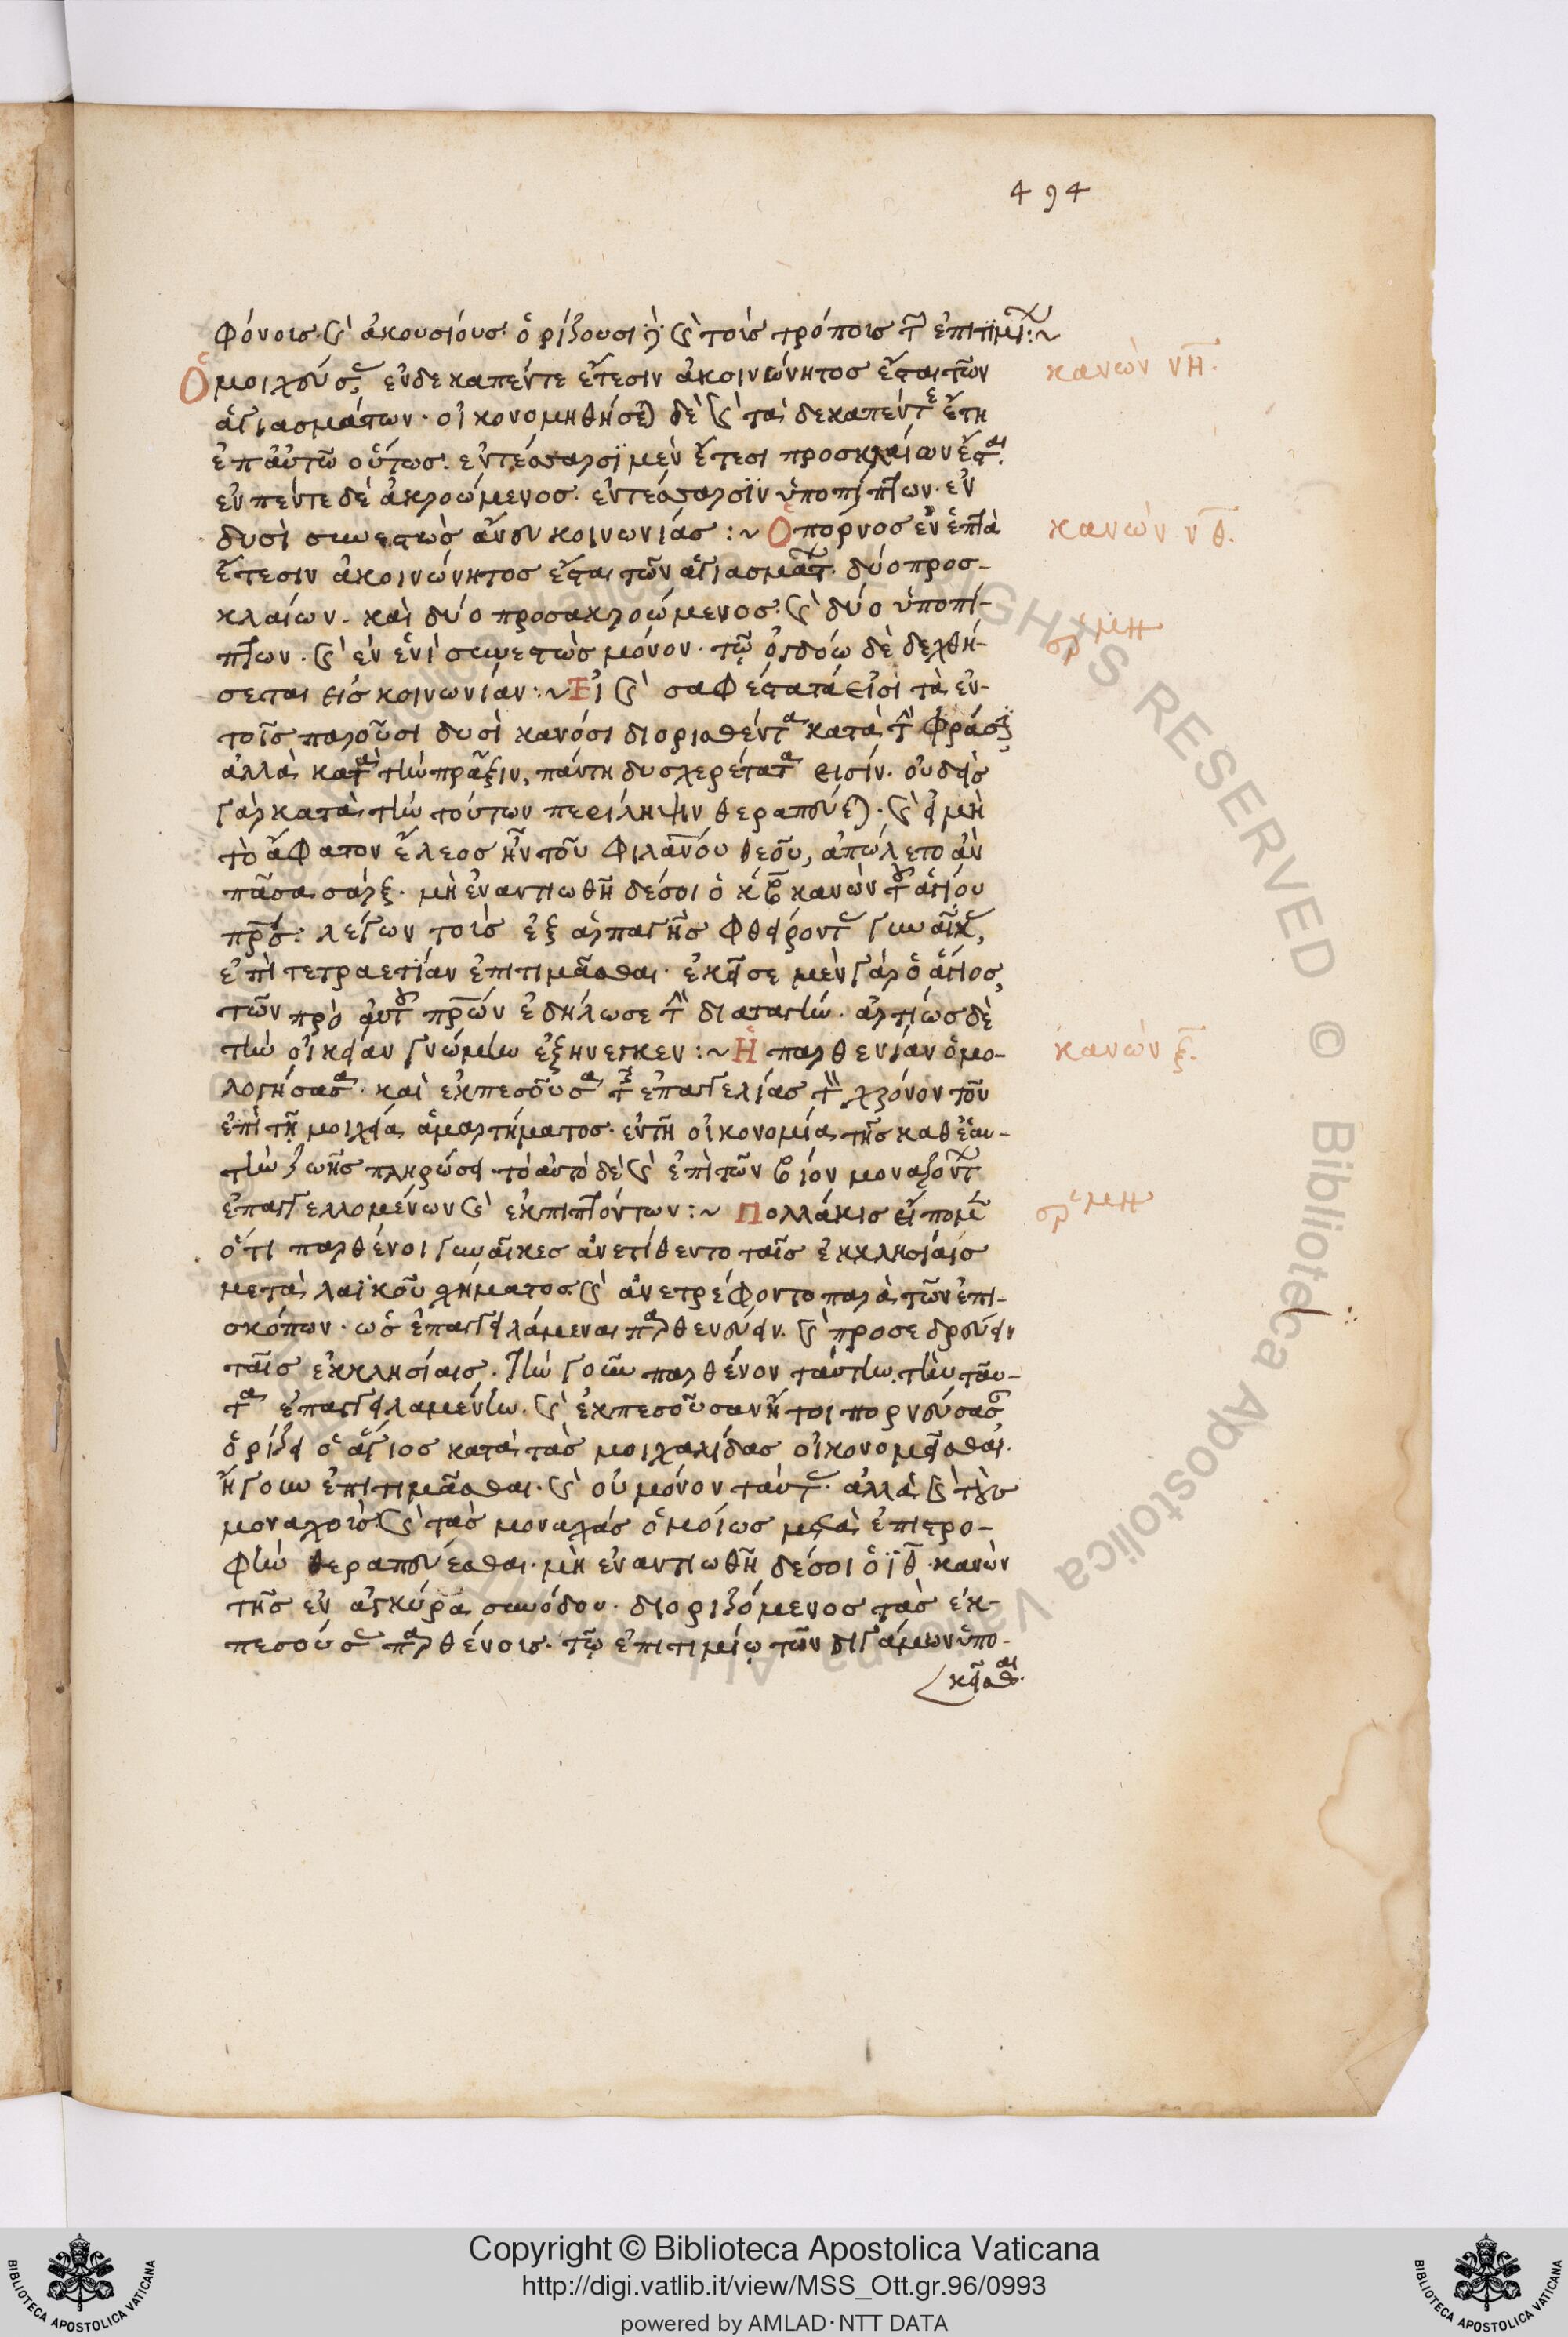 494
φόνοις. καὶ ἀκουσίους ὁρίζουσι καὶ τοῖς τρόποις τῶν ἐπιτιμίων:~
Ὁ μοιχεύσας, ἐν δεκαπέντε ἔτεσιν ἀκοινώνητος ἔσται τῶν
κανὼν νη.
ἁγιασμάτων. οἰκονομηθήσεται δὲ καὶ τὰ δεκαπέντε ἔτη
ἐπ αὐτῶ οὕτως. ἐν τέσσαρσι μὲν ἔτεσι προσκλαίων ἔσται.
ἐν πέντε δὲ ἀκροώμενος. ἐν τέσσαρσιν ὑποπίπτων. ἐν
δυσὶ συνεστὼς ἄνευ κοινωνίας:~ Ὁ πόρνος ἐν ἑπτὰ
κανὼν νθ.
ἔτεσιν ἀκοινώνητος ἔσται τῶν ἁγιασμάτων. δύο προσ-
κλαίων. καὶ δύο προσακροώμενος. καὶ δύο ὑποπί-
πτων. καὶ ἐν ἑνὶ συνεστὼς μόνον. τῷ ὀγδόω δὲ δεχθή-
σεται εἰς κοινωνίαν:~ Εἰ καὶ σαφέστατά εἰσι τὰ ἐν
τοῖς παροῦσι δυσὶ κανόσι διορισθέντα κατὰ τὴν φράσιν
ἀλλὰ κατὰ τὴν πρᾶξιν, πάντη δυσχερέστατα εἰσίν. οὐδεὶς
γὰρ κατὰ τὴν τούτων περίληψιν θεραπεύεται. καὶ εἰ μὴ
τὸ ἄφατον ἔλεος ἦν τοῦ φιλανου θεοῦ, ἀπώλετο ἂν
πᾶσα σάρξ. μὴ ἐναντιωθῆ δέ σοι ὁ κβ κανὼν τοῦ ἁγίου
πρς. λέγων τοῖς ἐξ ἁρπαγῆς φθείροντας γυναῖκας,
ἐπὶ τετραετίαν ἐπιτιμᾶσθαι. ἐκεῖσε μὲν γὰρ ὁ ἅγιος,
τῶν πρὸ αὐτοῦ πρων ἐδήλωσε τὴν διαταγὴν. ἀρτίως δὲ
τὴν οἰκείαν γνώμην ἐξήνεγκεν:~ Ἡ παρθενίαν ὁμο-
κανὼν ξ.
λογήσασα. καὶ ἐκπεσοῦσα τῆς ἐπαγγελίας τὸν χρόνον τοῦ
ἐπὶ τῆ μοιχεία ἁμαρτήματος. ἐν τῆ οἰκονομία τῆς καθ ἑαυ-
τὴν ζωῆς πληρώσει. τὸ αὐτὸ δὲ καὶ ἐπὶ τῶν βίον μοναζόντων
ἐπαγγελλομένων καὶ ἐκπιπτόντων:~ Πολλάκις εἴπομεν
ὅτι παρθένοι γυναῖκες ἀνετίθεντο ταῖς ἐκκλησίαις
μετὰ λαϊκοῦ σχήματος. καὶ ἀνετρέφοντο παρὰ τῶν ἐπι-
σκόπων. ὡς ἐπαγγειλάμεναι παρθενεύειν. καὶ προσεδρεύειν
ταῖς ἐκκλησίαις. τὴν γοῦν παρθένον ταύτην. τὴν ταῦ-
τα ἐπαγγειλαμένην. καὶ ἐκπεσοῦσαν ἤτοι πορνεύσασαν
ὁρίζει ὁ ἅγιος κατὰ τὰς μοιχαλίδας οἰκονομεῖσθαι.
ἤγουν ἐπιτιμᾶσθαι. καὶ οὐ μόνον ταύτας. ἀλλὰ καὶ τοὺς
μοναχοὺς. καὶ τὰς μοναχάς ὁμοίως μετὰ ἐπιστρο-
φὴν θεραπεύεσθαι. μὴ ἐναντιωθῆ δέ σοι ὁ ιθ. κανὼν
τῆς ἐν ἀγκύρα συνόδου. διοριζόμενος τὰς ἐκ-
πεσούσας παρθένοις. τῷ ἐπιτιμίῳ τῶν διγάμων ὑπο-
κεῖσθαι.
Copyright © Biblioteca Apostolica Vaticana
http://digi.vatlib.it/view/MSS_Ott.gr.96/0993
powered by AMLAD·NTT DATA